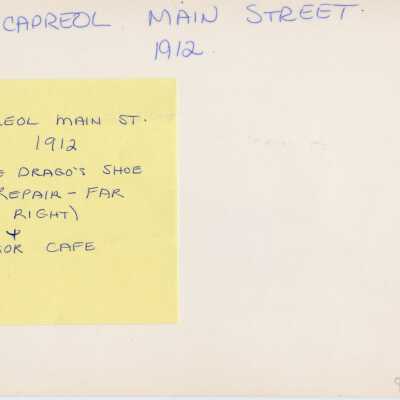 CAPREOL MAIN STREET.
1912.
EOL MAIN ST.
1912
DRAGO'S SHOE
REPAIR - FAR
RIGHT)
+
OR CAFE